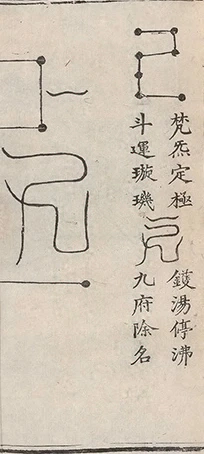 梵炁定極　鑊湯停沸
斗運璇璣　九府除名